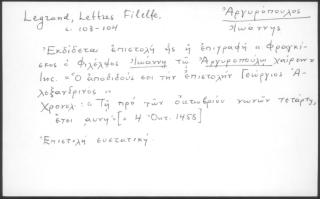 Legrand, Lettres Filelfe.
Ἀργυρόπουλος
σ. 103-104
Ἰωάννης
Ἐκδίδεται ἐπιστολή ἧς ἡ ἐπιγραφή « Φραγκί-
σκος ὁ Φιλέλφος Ἰωάννῃ τῷ Ἀργυροπούλῳ χαίρειν»
Inc. «Ὁ ἀποδιδούς σοι τήν ἐπιστολήν Γεώργιος Ἀ-
λεξανδρῖνος»
Χρονολ: «Τῇ πρό τῶν ὀκτωβρίου νωνῶν τετάρτῃ,
ἔτει αυνῳ [= 4 Ὀκτ. 1455]
Ἐπιστολή συστατική.